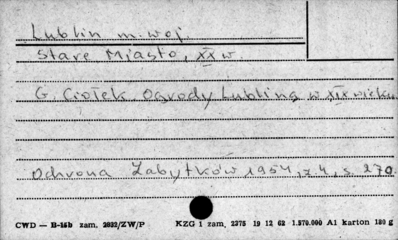 Lublin m. woj.
Stare Miasto, XX w.
G. Ciołek Ogrody Lublina w XIX wieku
Ochrona Zabytków 1954, z. 4, s. 270.
CWD — B-15b zam. 2892/ZW/P KZG 1 zam. 2275 19 12 62 1.570.000 A1 karton 180 g